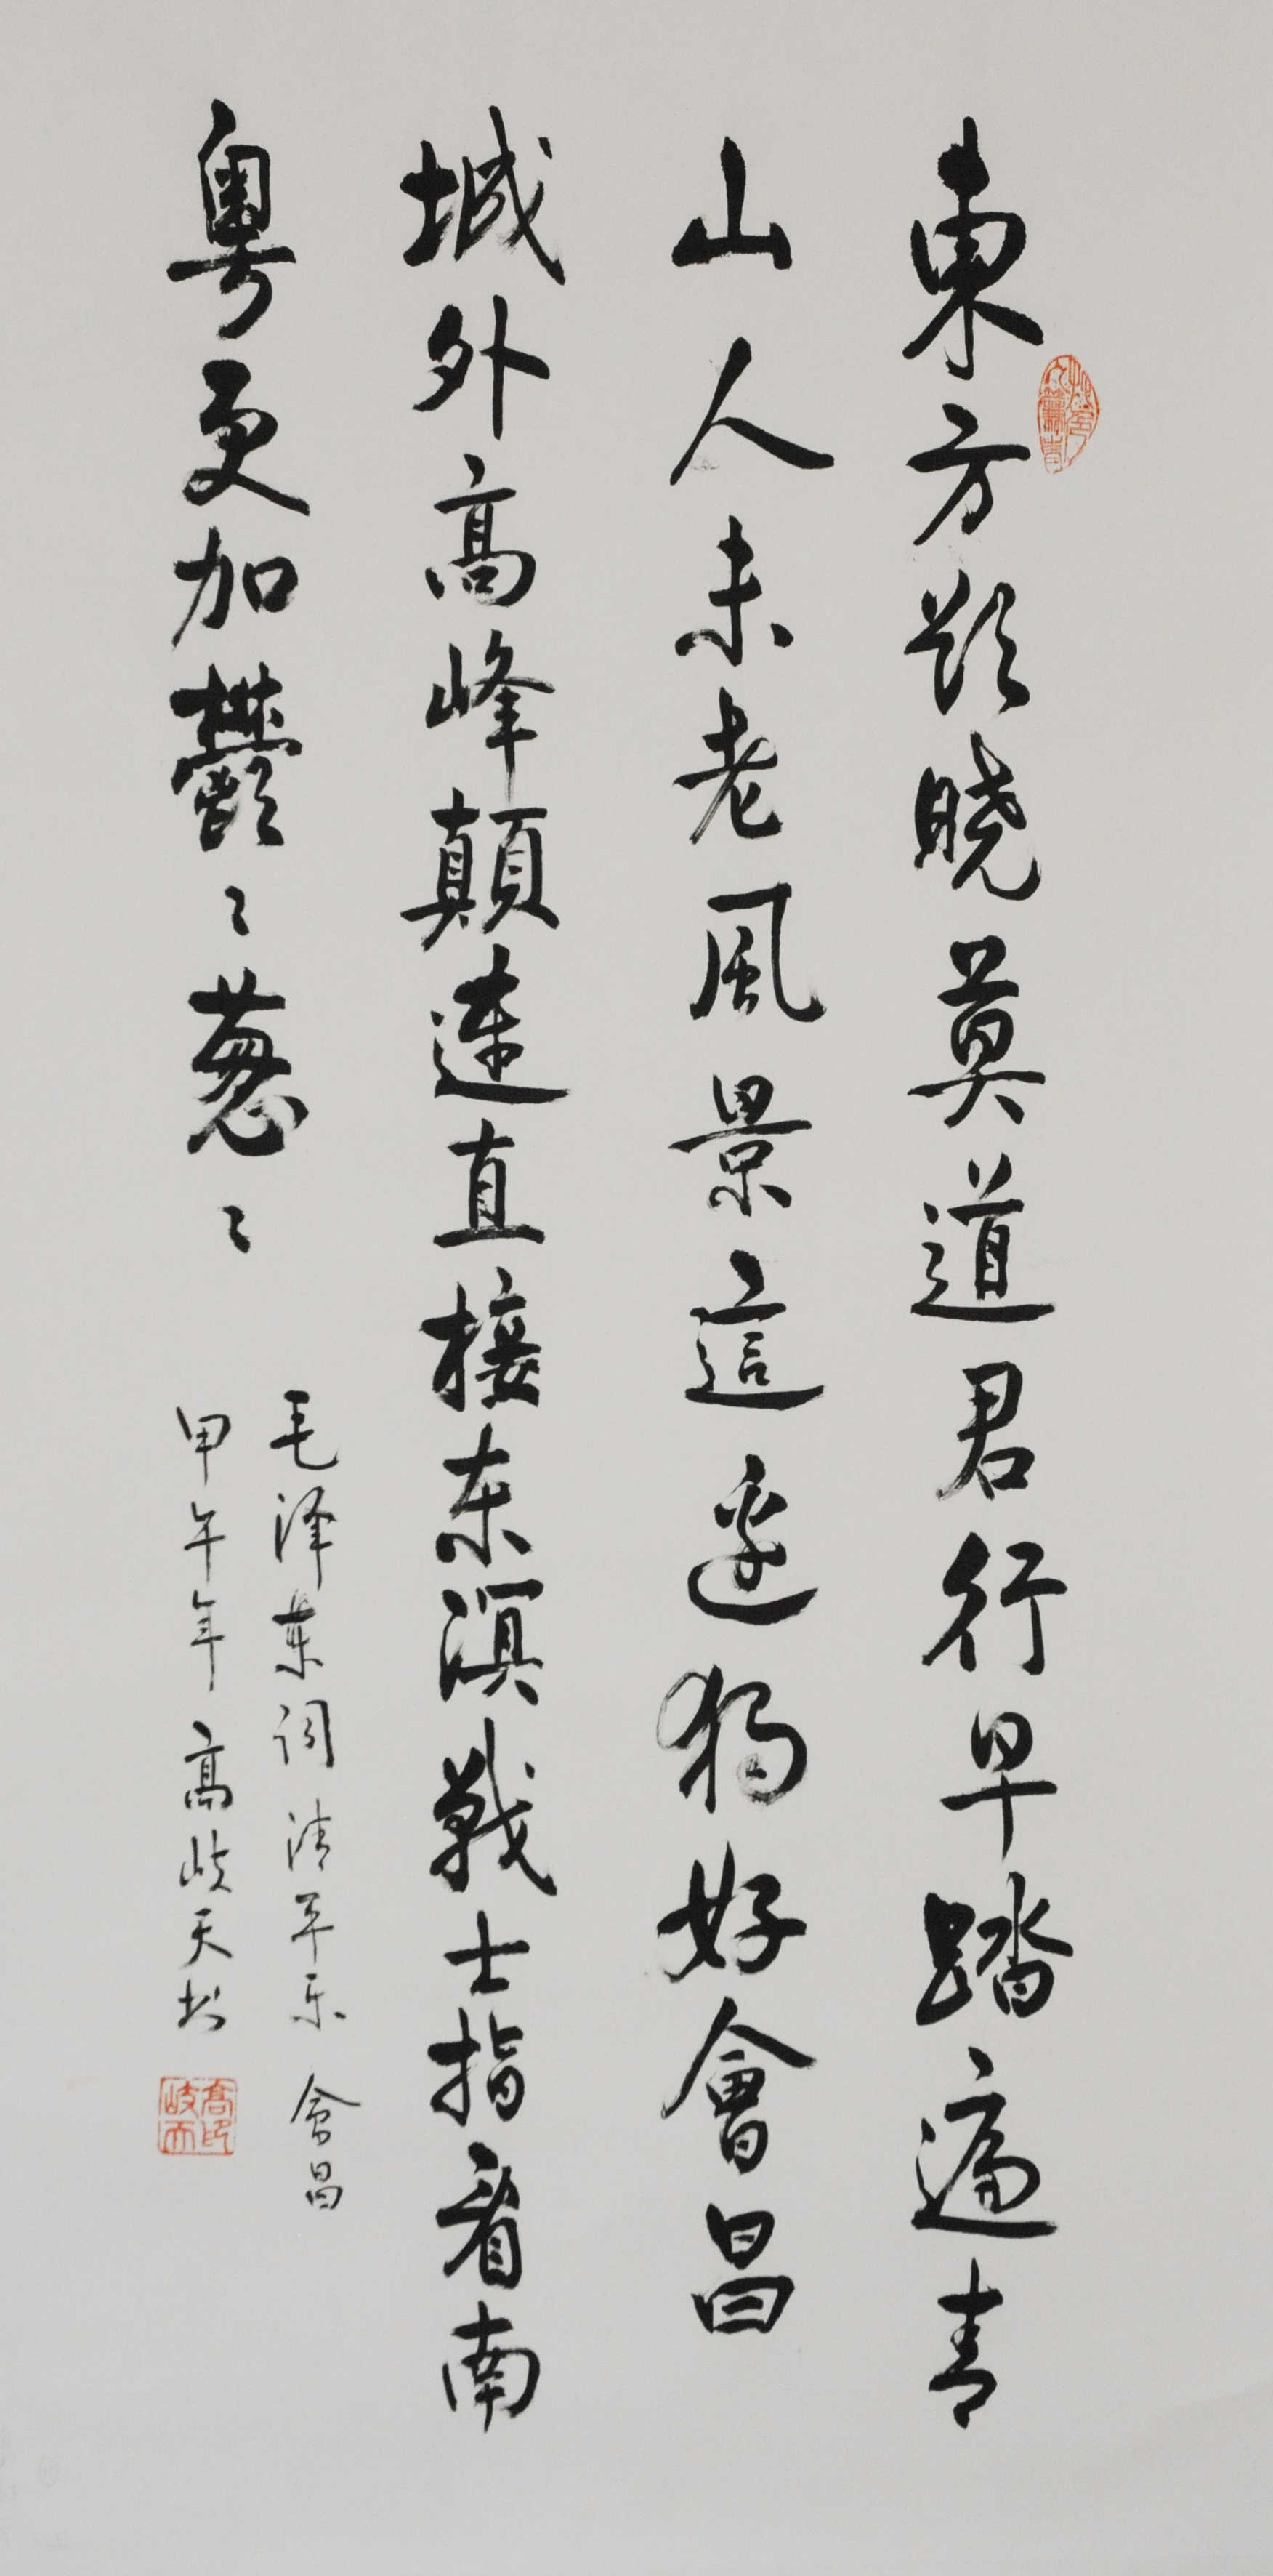 東方欲曉莫道君行早踏遍青
山人未老風景這边獨好會昌
城外高峰顛連直接东溟戰士指看南
粵更加鬱〻葱〻
毛泽东词清平乐 会昌
甲午年高歧天书
高歧天印